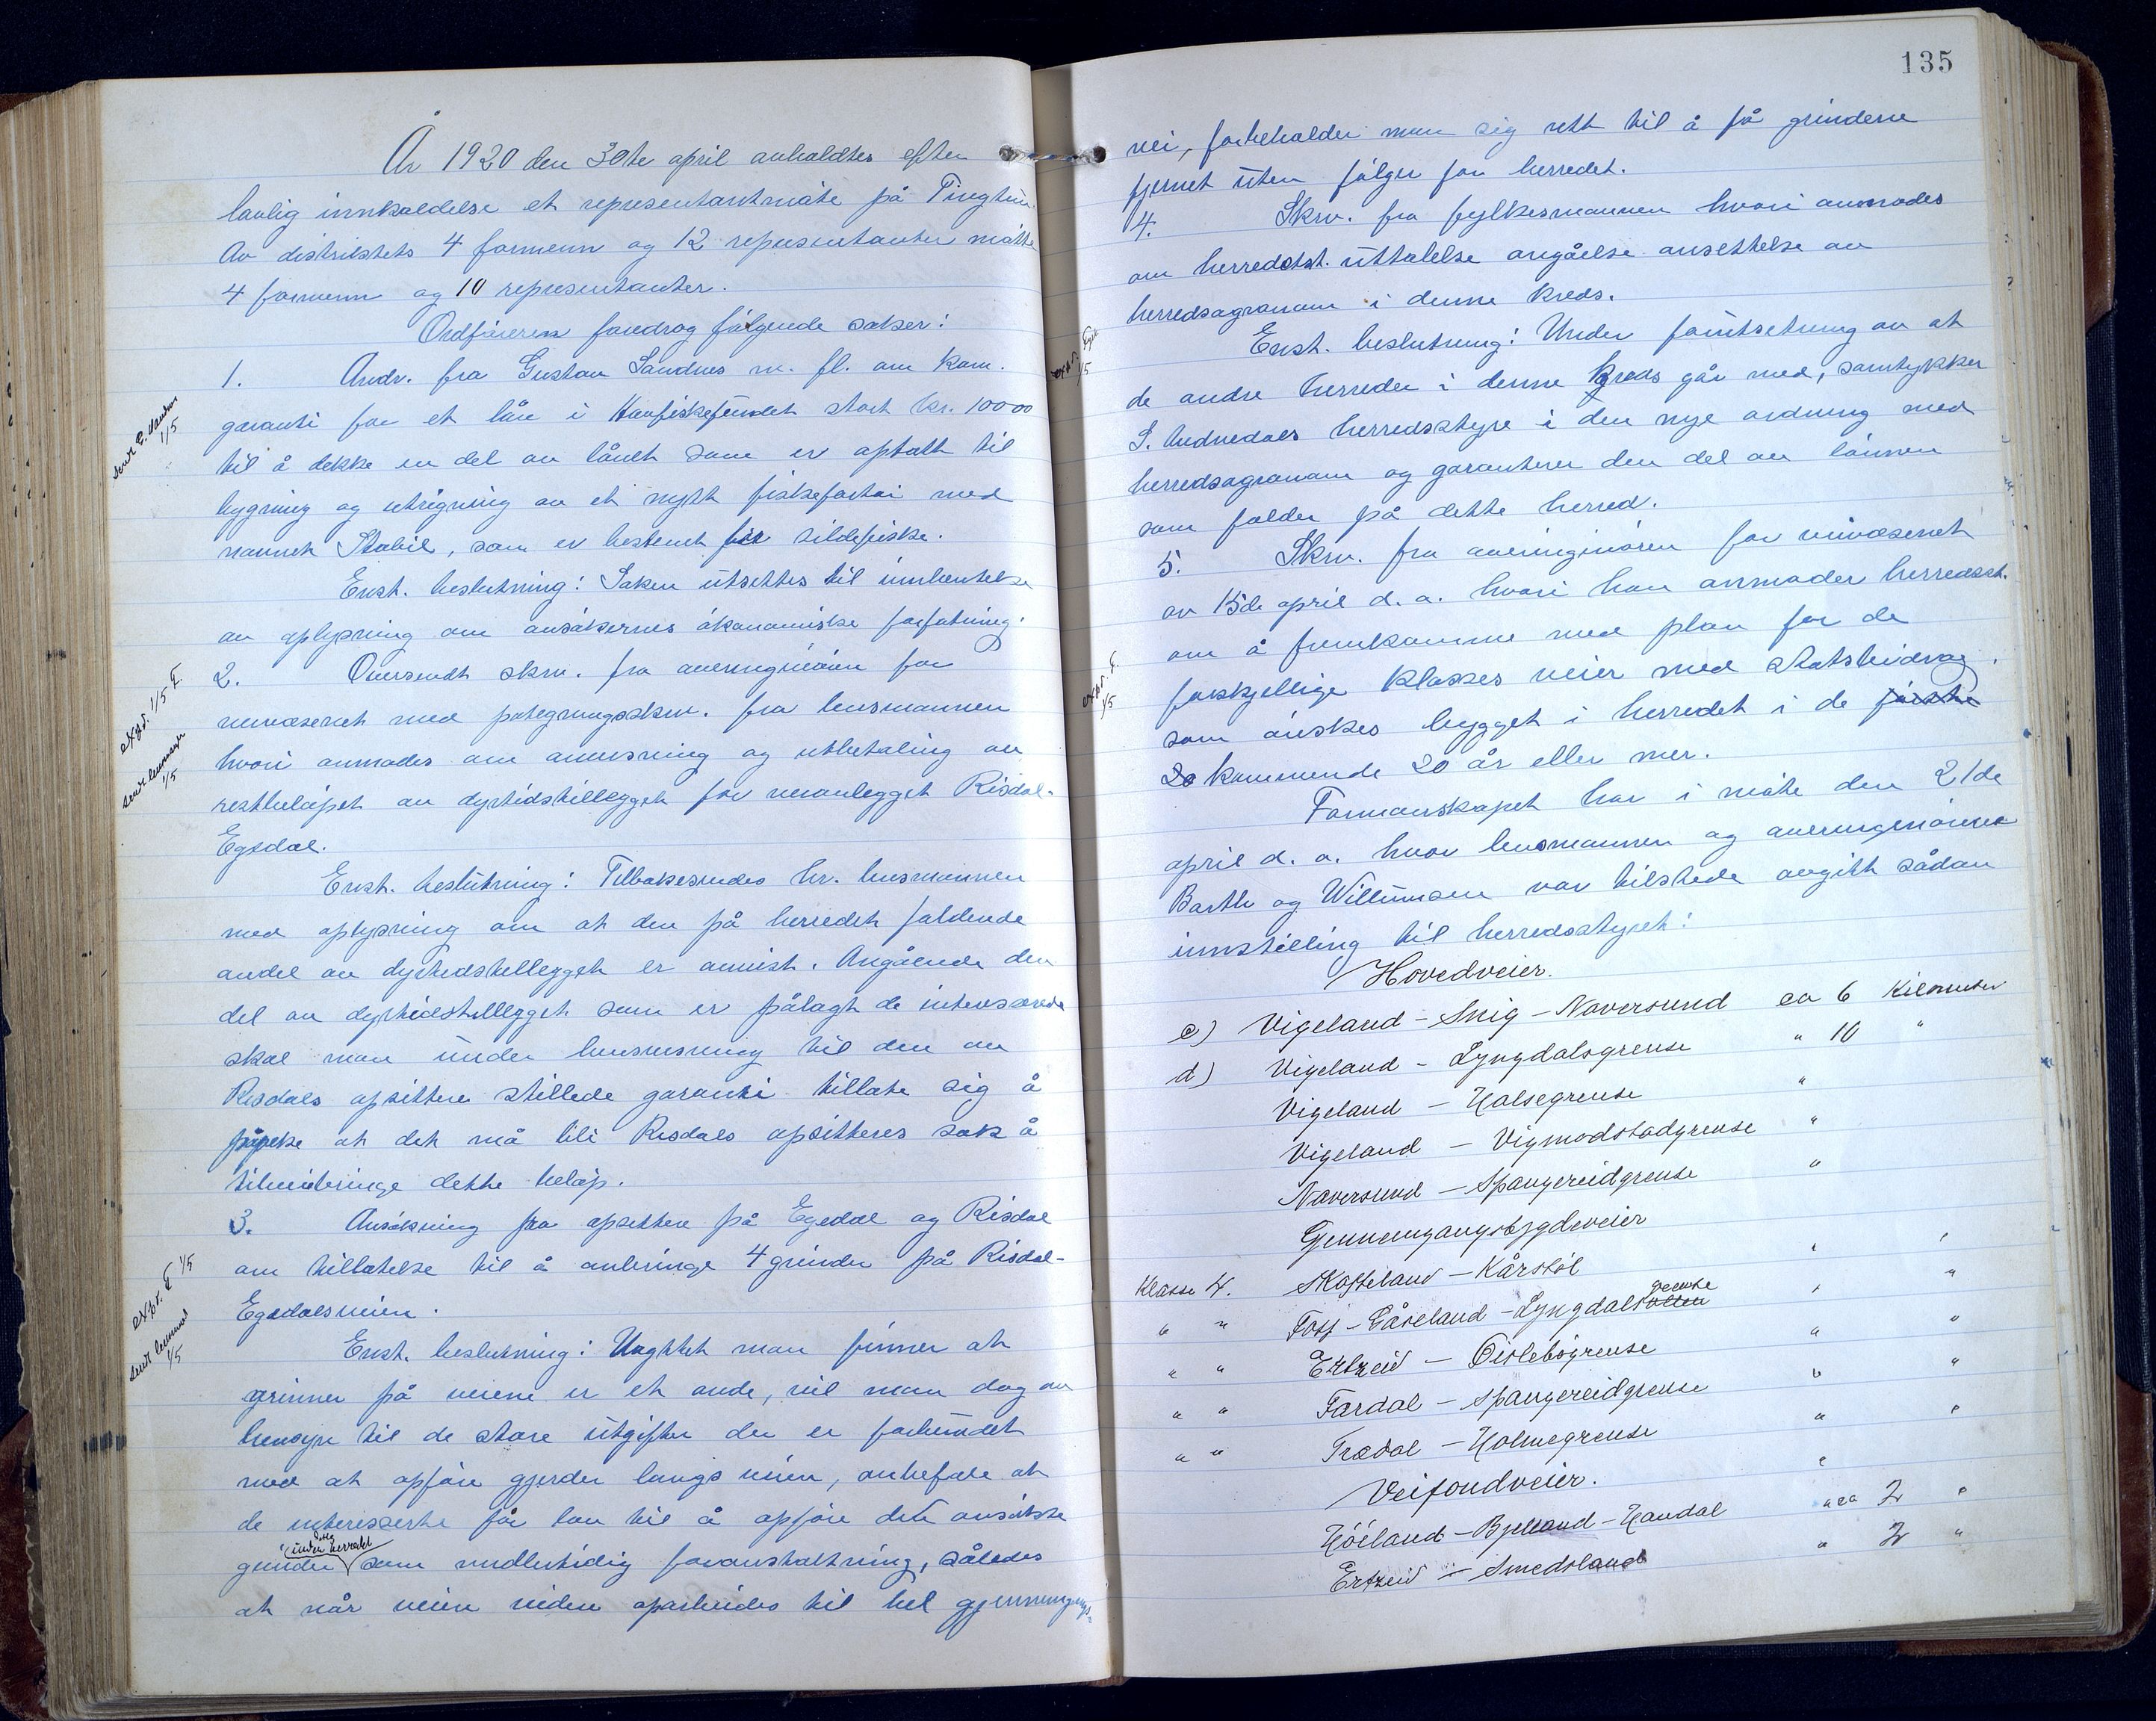 År 1920 den 30te april anholdtes efter
lovlig innkaldelse et representantmøte på Tingtun.
Av distriktets 4 formenn og 12 representanter møtte
4 formenn og 10 representanter.
Ordføreren foredrog følgende saker:
1. Andr. fra Gustav Sandnes m. fl. om kom.
garanti for et lån i Havfiskefondet stort kr. 10000
til å dekke en del av lånet som er optatt til
bygning og utrigning av et nytt fiskefartøi med
navnet Stabil, som er bestemt for sildefiske.
Enst. beslutning: Saken utsettes til innhentelse
av oplysning om ansøkernes økonomiske forfatning.
2. Oversendt skrv. fra aveningeniøren for
veivæsenet med påtegningsskrv. fra lensmannen
hvori anmodes om anvisning og utbetaling av
restbeløpet av dyrtidstillegget for veianlegget Risdal-
Egsdal.
Enst. beslutning: Tilbakesendes hr. lensmannen
med oplysning om at den på herredet faldende
andel av dyrtidstillegget er anvist. Angående den
del av dyrtidstillegget som er pålagt de interesserede
skal man under henvisning til den av
Risdals opsittere stillede garanti tillate sig å
påpeke at det må bli Risdals opsitteres sak å
tilveiebringe dette beløp.
3. Ansøkning fra opsittere på Egedal og Risdal
om tillatelse til å anbringe 4 grinder på Risdal-
Egedalsveien.
Enst. beslutning: Uagtet man finner at
grinner på veiene er et onde, vil man dog av
hensyn til de store utgifter der er forbundet
med at opføre gjerder langs veien, anbefale at
de interesserte får lov til å opføre de ansøkte
under dette herredet
grinder som midlertidig foranstaltning, således
at når veien videre oparbeides til hel gjennemgangs-
sendt G. Sandnes
1/5
expr. 1/5 T.
sendt lensmannen
1/5
expr. T 1/5
sendt lensmand
1/5
135
vei, forbeholder man sig rett til å få grinderne
fjernet uten følger for herredet.
4. Skrv. fra fylkesmannen hvori anmodes
om herredsst. uttalelse angåelse ansettelse av
herredsagronom i denne kreds.
Enst. beslutning: Under forutsetning av at
de andre herreder i denne kreds går med, samtykker
S. Audnedals herredsstyre i den nye ordning med
herredsagronom og garanterer den del av lønnen
som falder på dette herred.
5. Skrv. fra aveningeniøren for veivæsenet
av 15de april d. a. hvori han anmoder herredsst.
om å fremkomme med plan for de
forskjellige klasses veier med statsbidrag
som ønskes bygget i herredet i de første
20 kommende 20 år eller mer.
Formanskapet har i møte den 21de
april d. a. hvor lensmannen og aveningeniørene
Barth og Willumsen var tilstede avgitt sådan
innstilling til herredsstyret:
Hovedveier.
c) Vigeland - Snig - Naversund ca 6 Kilometer
d) Vigeland - Lyngdalsgrense " 10 "
Vigeland - Halsegrense "
Vigeland - Vigmodstadgrense "
Naversund - Spangereidgrense "
Gjennemgangsbygdeveier
Klasse 4. Skofteland - Kårstøl " "
grense
" " Foss - Gåseland - Lyngdalsvolten " "
" " Ertzeid - Øislebøgrense " "
" " Fardal - Spangereidgrense " "
" " Trædal - Holmegrense " "
Veifondveier. "
Høiland - Bjelland - Haudal " ca 2 "
Ertzeid - Smedsland " 2 "
expr. T.
1/5